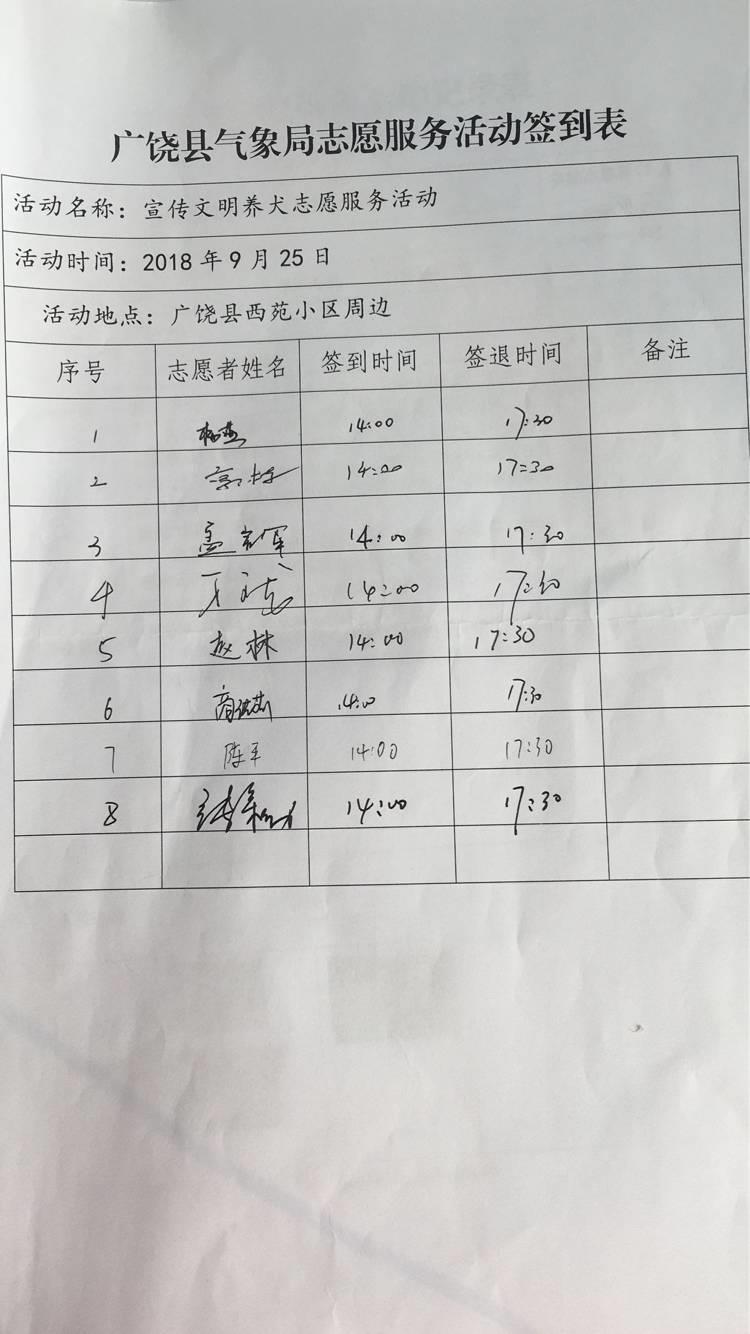 广饶县气象局志愿服务活动签到表
活动名称：宣传文明养犬志愿服务活动
活动时间：2018 年 9 月 25 日
活动地点：广饶县西苑小区周边
序号 志愿者姓名 签到时间 签退时间 备注
1 14:00 17:30
2 14:00 17:30
3 14:00 17:30
4 14:00 17:30
5 赵林 14:00 17:30
6 14:00 17:30
7 陈军 14:00 17:30
8 14:00 17:30